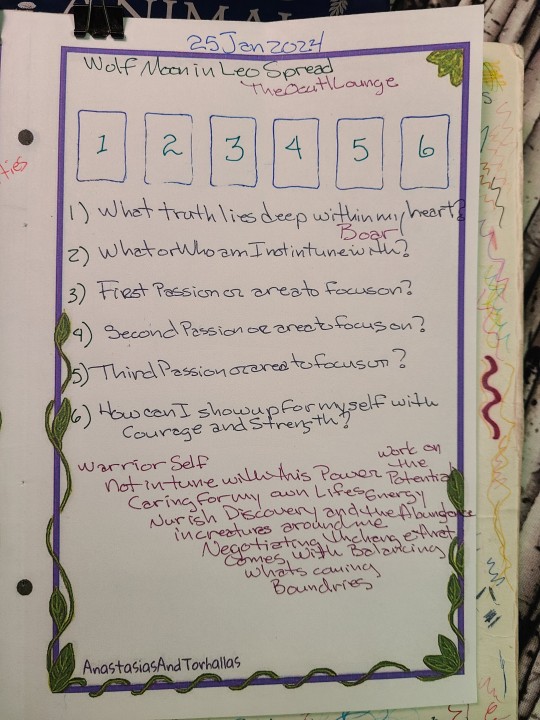 ANIMAL
25 Jan 2024
Wolf Moon in Leo Spread
TheOcultLounge
1 2 3 4 5 6
ties
1) What truth lies deep within my heart?
Boar
2) What or Who am I not in tune with?
3) First Passion or area to focus on?
4) Second Passion or area to focus on?
5) Third Passion or area to focus on?
6) How can I show up for myself with
Courage and Strength?
Warrior Self
work on
not in tune with this Power the Potential
Caring for my own Lifes Energy
Nurish Discovery and the Abungance
in creatures around me
Negotiating Unchange that
Comes With Balancing
whats coming
Boundries
AnastasiasAndTorhallas